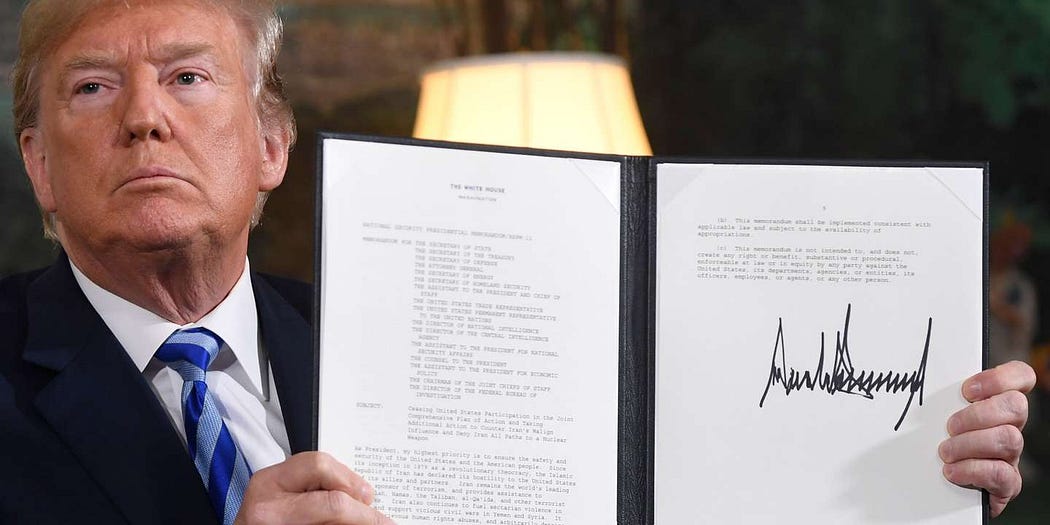 THE WHITE HOUSE
WASHINGTON
NATIONAL SECURITY PRESIDENTIAL MEMORANDUM/NSPM-11
MEMORANDUM FOR THE SECRETARY OF STATE
THE SECRETARY OF THE TREASURY
THE SECRETARY OF DEFENSE
THE ATTORNEY GENERAL
THE SECRETARY OF ENERGY
THE SECRETARY OF HOMELAND SECURITY
THE ASSISTANT TO THE PRESIDENT AND CHIEF OF
STAFF
THE UNITED STATES TRADE REPRESENTATIVE
THE UNITED STATES PERMANENT REPRESENTATIVE
TO THE UNITED NATIONS
THE DIRECTOR OF NATIONAL INTELLIGENCE
THE DIRECTOR OF THE CENTRAL INTELLIGENCE
AGENCY
THE ASSISTANT TO THE PRESIDENT FOR NATIONAL
SECURITY AFFAIRS
THE COUNSEL TO THE PRESIDENT
THE ASSISTANT TO THE PRESIDENT FOR ECONOMIC
POLICY
THE CHAIRMAN OF THE JOINT CHIEFS OF STAFF
THE DIRECTOR OF THE FEDERAL BUREAU OF
INVESTIGATION
SUBJECT: Ceasing United States Participation in the Joint
Comprehensive Plan of Action and Taking
Additional Action to Counter Iran's Malign
Influence and Deny Iran All Paths to a Nuclear
Weapon
As President, my highest priority is to ensure the safety and
security of the United States and the American people. Since
its inception in 1979 as a revolutionary theocracy, the Islamic
Republic of Iran has declared its hostility to the United States
and its allies and partners. Iran remains the world's leading
sponsor of terrorism, and provides assistance to
Hamas, the Taliban, al-Qa'ida, and other terrorist
Iran also continues to fuel sectarian violence in
and support vicious civil wars in Yemen and Syria. It
human rights abuses, and arbitrarily
5
(b) This memorandum shall be implemented consistent with
applicable law and subject to the availability of
appropriations.
(c) This memorandum is not intended to, and does not,
create any right or benefit, substantive or procedural,
enforceable at law or in equity by any party against the
United States, its departments, agencies, or entities, its
officers, employees, or agents, or any other person.